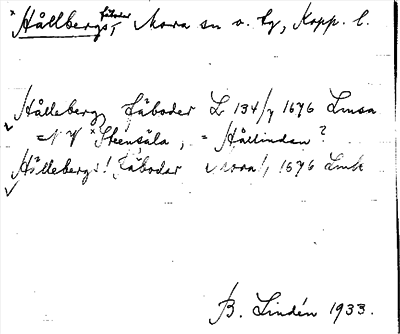 *Hållbergs, fäboder Mora sn o. tg, Kopp. l.
Hålleberg fäboder L 134/7 1676 Lmsa
NV *Steensäla, = Hållindan?
Hållebergs! fäboder Mora!, 1676 Lmk
B. Lindén 1933.